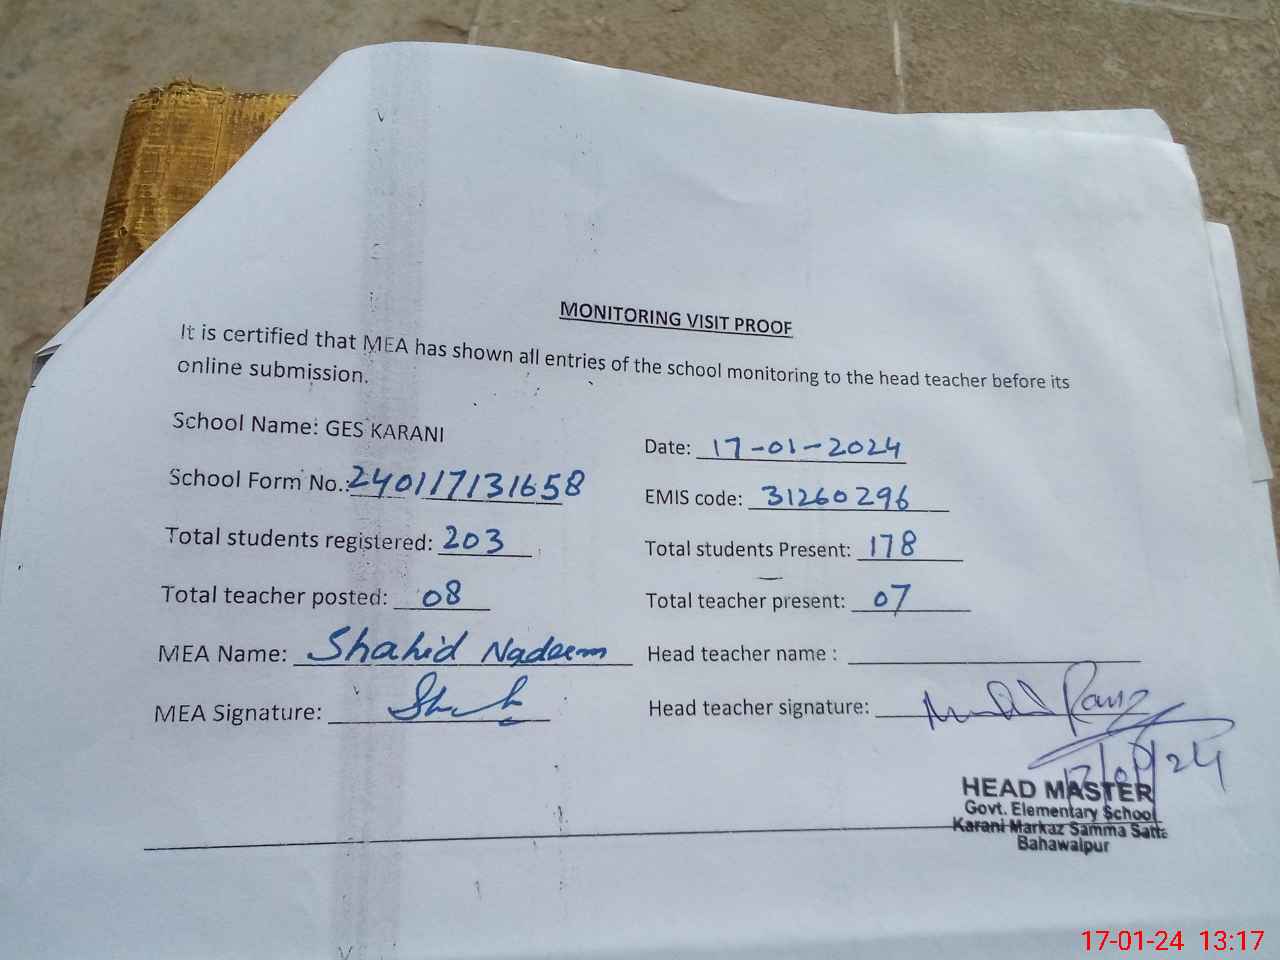 MONITORING VISIT PROOF
It is certified that MEA has shown all entries of the school monitoring to the head teacher before its
online submission.
School Name: GES KARANI
Date: 17-01-2024
School Form No.: 240117131658
EMIS code: 31260296
Total students registered: 203
Total students Present: 178
Total teacher posted: 08
Total teacher present: 07
MEA Name: Shahid Nadeem
Head teacher name :
MEA Signature:
Head teacher signature:
17/01/24
HEAD MASTER
Govt. Elementary School
Karani Markaz Samma Satta
Bahawalpur
17-01-24 13:17